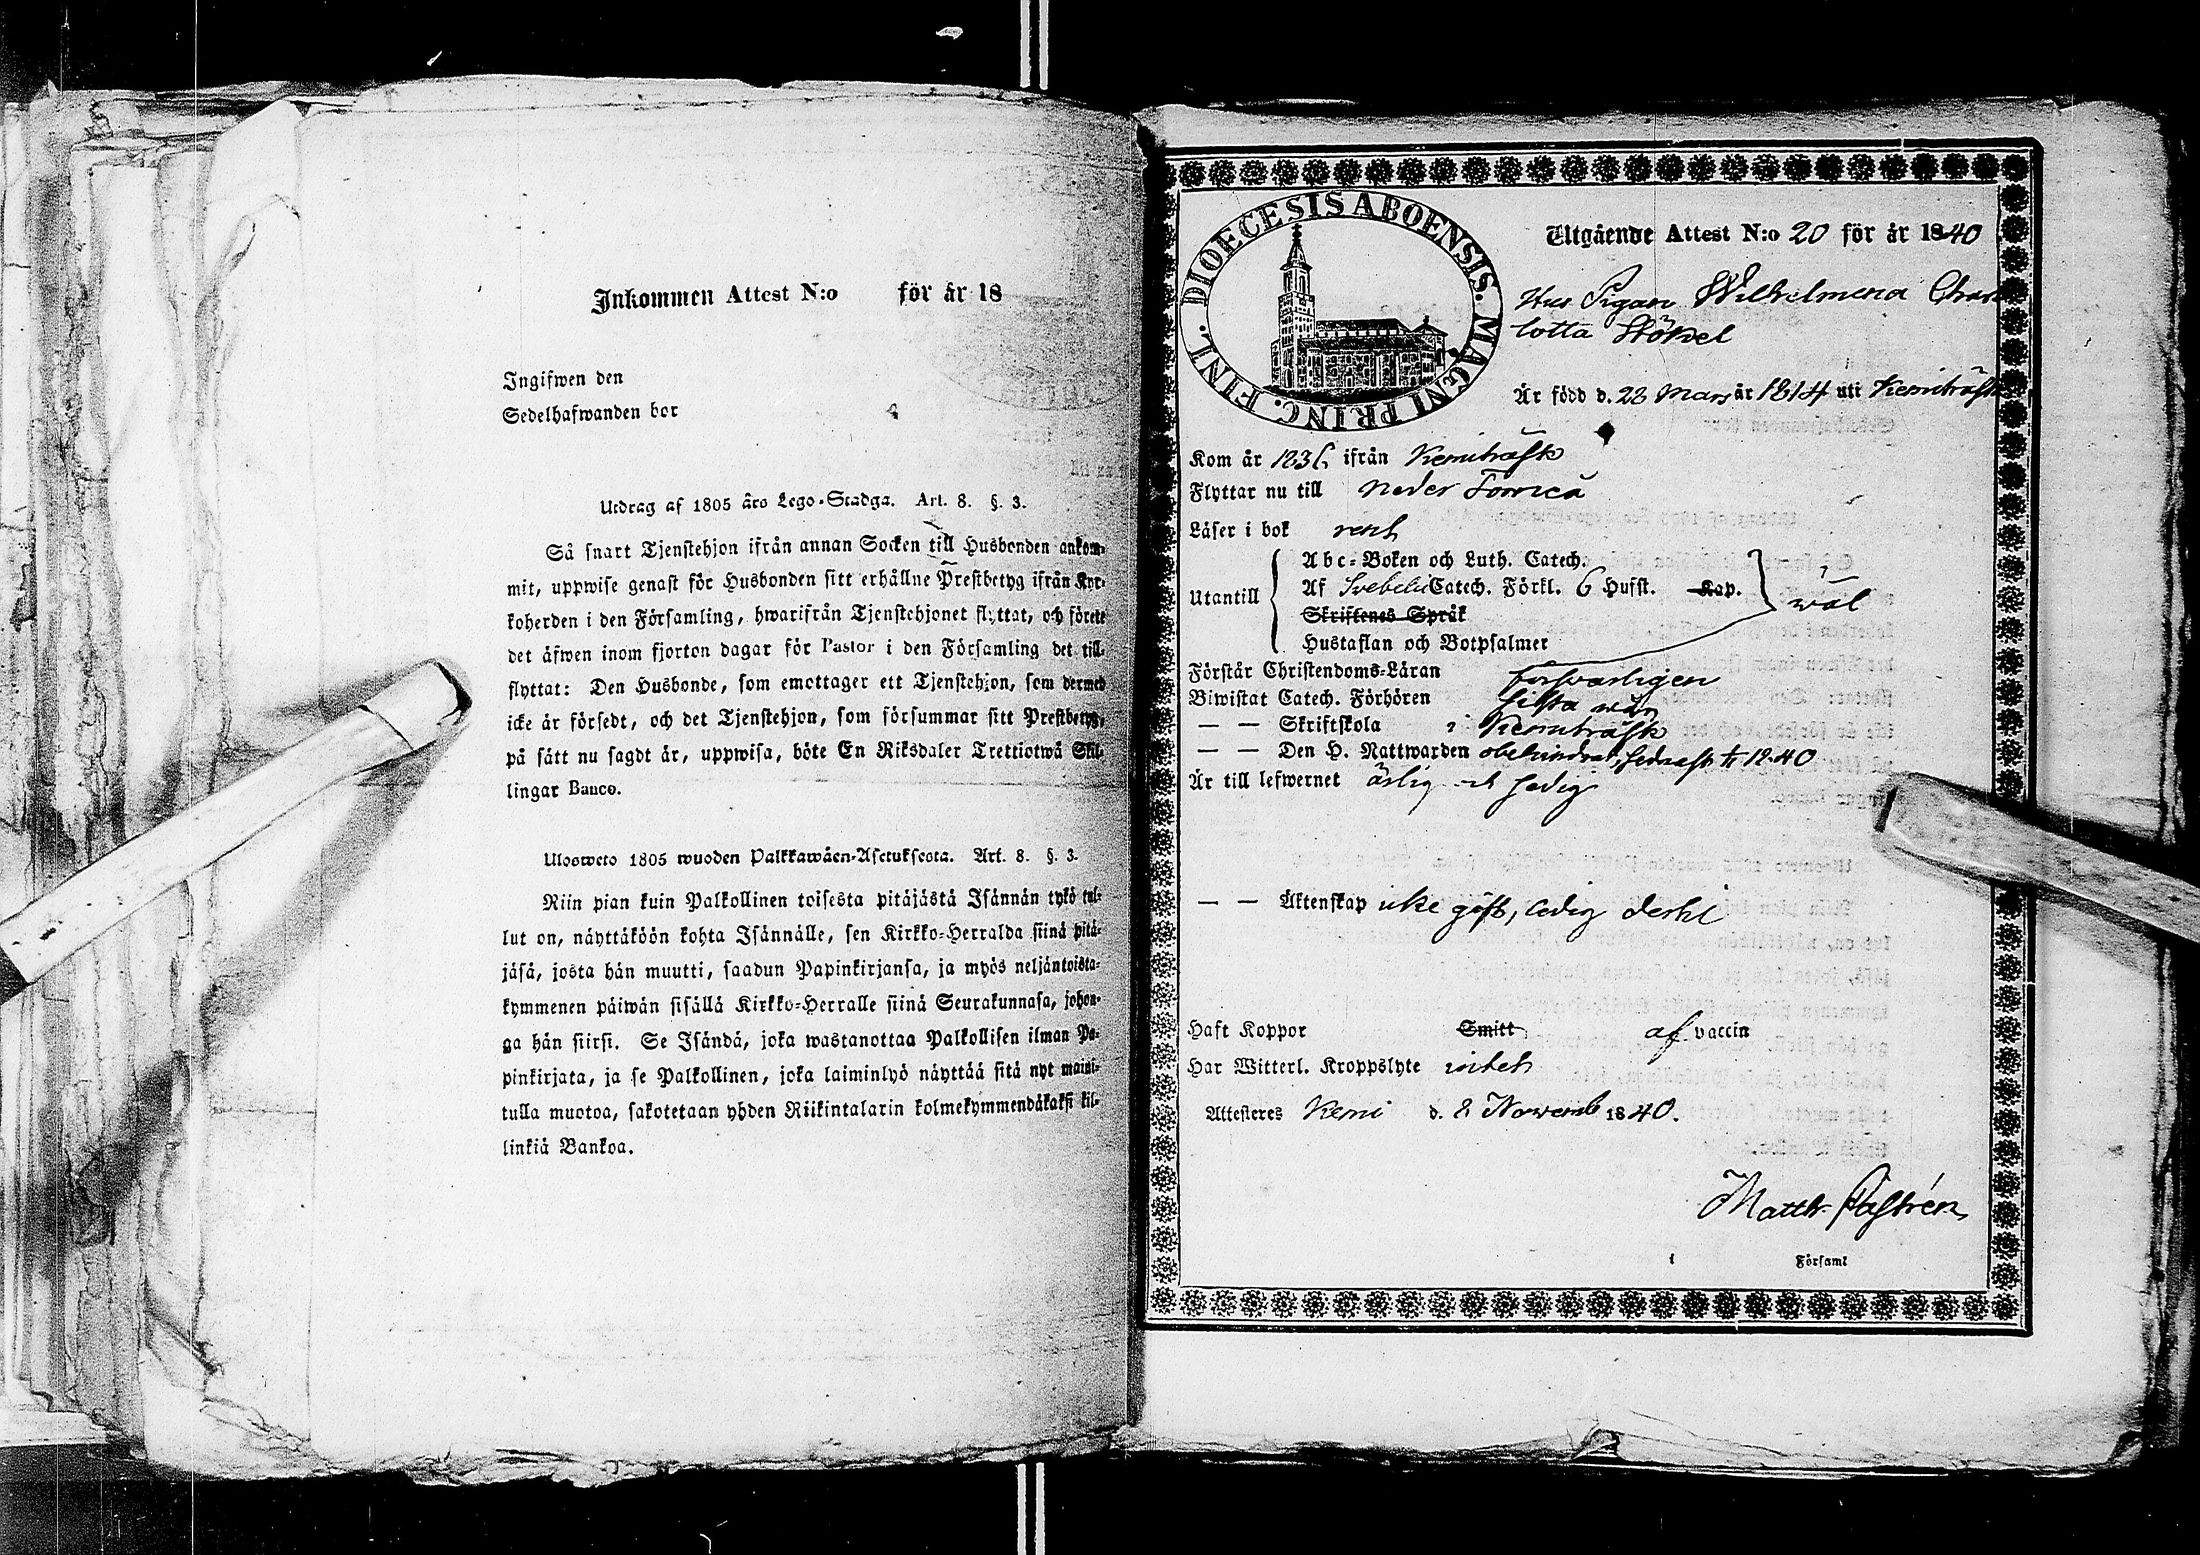 Inkommen Attest N:o för år 18
Ingifwen den
Sedelhafwanden bor
Utdrag af 1805 års Lego-Stadga. Art. 8. §. 3.
Så snart Tjenstehjon ifrån annan Socken till Husbonden ankom-
mit, uppwise genast för Husbonden sitt erhållne Prestbetyg ifrån Kyr-
koherden i den Församling, hwarifrån Tjenstehjonet flyttat, och förete
det äfwen inom fjorton dagar för Pastor i den Församling det till-
flyttat: Den Husbonde, som emottager ett Tjenstehjon, som dermed
icke är försedt, och det Tjenstehjon, som försummar sitt Prestbetyg,
på sätt nu sagdt är, uppwisa, böte En Riksdaler Trettiotwå Skil-
lingar Banco.
Ulosweto 1805 wuoden Palkkawäen-Asetuksesta. Art. 8. §. 3.
Niin pian kuin Palkollinen toisesta pitäjästä Isännän tykö tul-
lut on, näyttäköön kohta Isännälle, sen Kirkko-Herralda siinä pitä-
jäsä, josta hän muutti, saadun Papinkirjansa, ja myös neljäntoista-
kymmenen päiwän sisällä Kirkko-Herralle siinä Seurakunnasa, johon-
ga hän siirsi. Se Isändä, joka wastanottaa Palkollisen ilman Pa-
pinkirjata, ja se Palkollinen, joka laiminlyö näyttää sitä nyt maini-
tulla muotoa, sakotetaan yhden Riikintalarin kolmekymmendäkaksi kil-
linkiä Bankoa.
DIOECESIS ABOENSIS. MAGNI PRINC. FINL.
Utgående Attest N:o 20 för år 1840
Hus Pigan Wilhelmina Char
lotta Stökel
Är född d. 23 Mars år 1814 uti Kemiträsk
Kom år 1836 ifrån Kemiträsk
Flyttar nu till Neder Torneå
Läser i bok rent
Utantill
Abc-Boken och Luth. Catech.
Af Svebelii Catech. Förkl. 6 Hufst. Kap.
Skriftenes Språk
Hustaflan och Botpsalmer
wäl
Förstår Christendoms-Läran försvarligen
Biwistat Catech. Förhören sista wår
— — Skriftskola i Kemiträsk
— — Den H. Nattwarden obehindrad, sednast 12-40
Är till lefwernet ärlig och sedig
— — Äktenskap icke gift, ledig dertil
Haft Koppor Smitt af vaccin
Har Witterl. Kroppslyte intet
Attesteres Kemi d. 8 Novemb 1840.
Matth. Castrén
i Församl